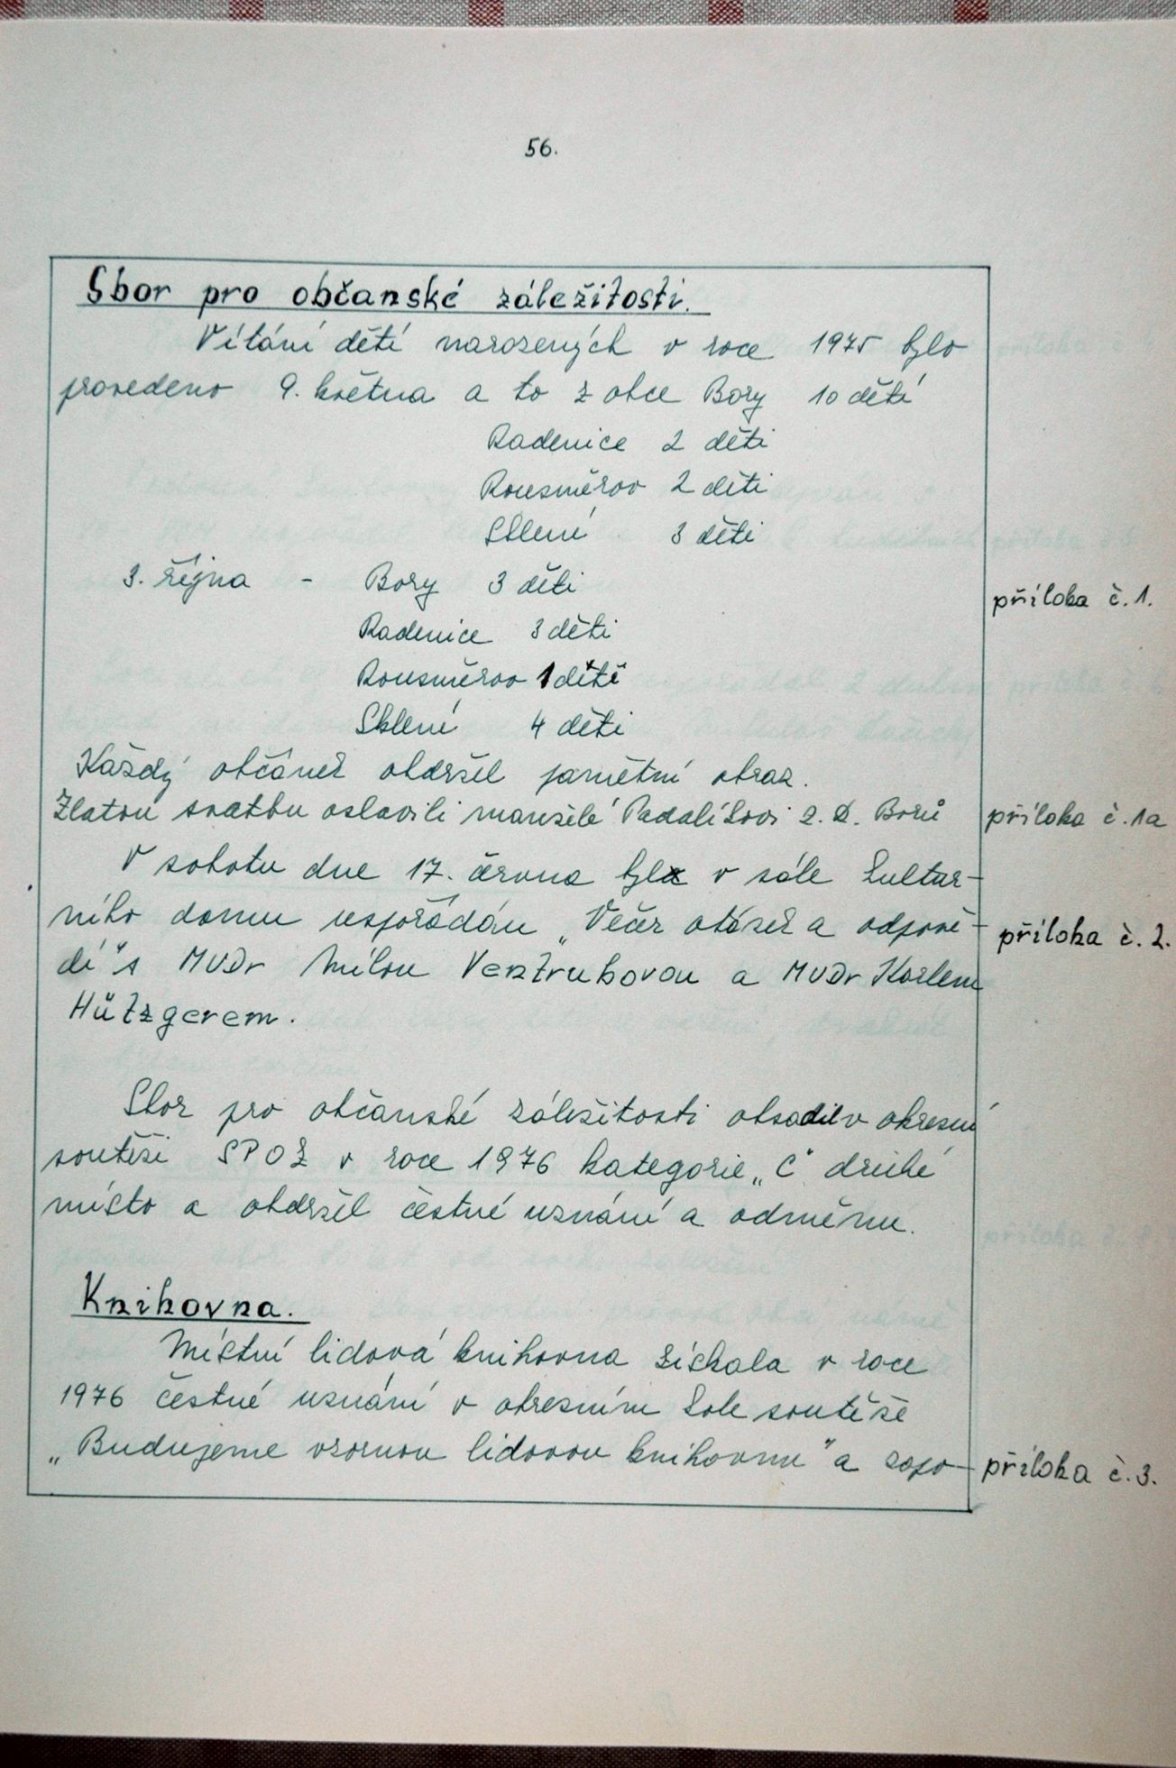 56.
Sbor pro občanské záležitosti.
Vítání dětí narozených v roce 1975 bylo
provedeno 9. května a to z obce Bory 10 dětí
Radenice 2 děti
Rousměrov 2 děti
Sklené 3 děti
3. října - Bory 3 děti
příloha č. 1.
Radenice 3 děti
Rousměrov 1 dítě
Sklení 4 děti
Každý občánek obdržel pamětní obraz.
Zlatou svatbu oslavili manželé Padalíkovi z D. Borů
příloha č. 1a
V sobotu dne 17. června byl v sále kultur-
ního domu uspořádán „Večer otázek a odpově-
příloha č. 2.
dí" s MVDr Mílou Ventrubovou a MVDr Karlem
Hützgerem.
Sbor pro občanské záležitosti obsadil v okresní
soutěži SPOZ v roce 1976 kategorie „C" druhé
místo a obdržel čestné uznání a odměnu.
Knihovna.
Místní lidová knihovna získala v roce
1976 čestné uznání v okresním kole soutěže
„Budujeme vzornou lidovou knihovnu" a zapo-
příloha č. 3.